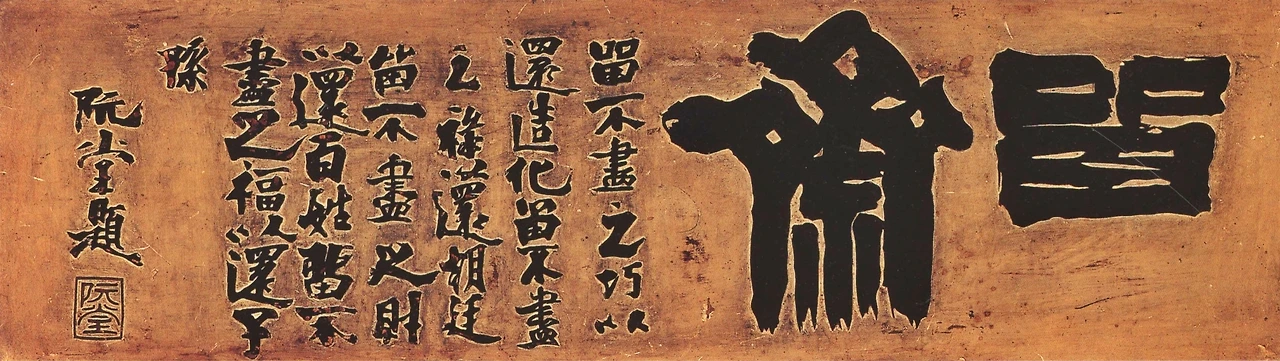 留齋
留不盡之巧以
還造化留不盡
之祿以還朝廷
留不盡之財
以還百姓留不
盡之福以還子
孫
阮堂題
阮堂